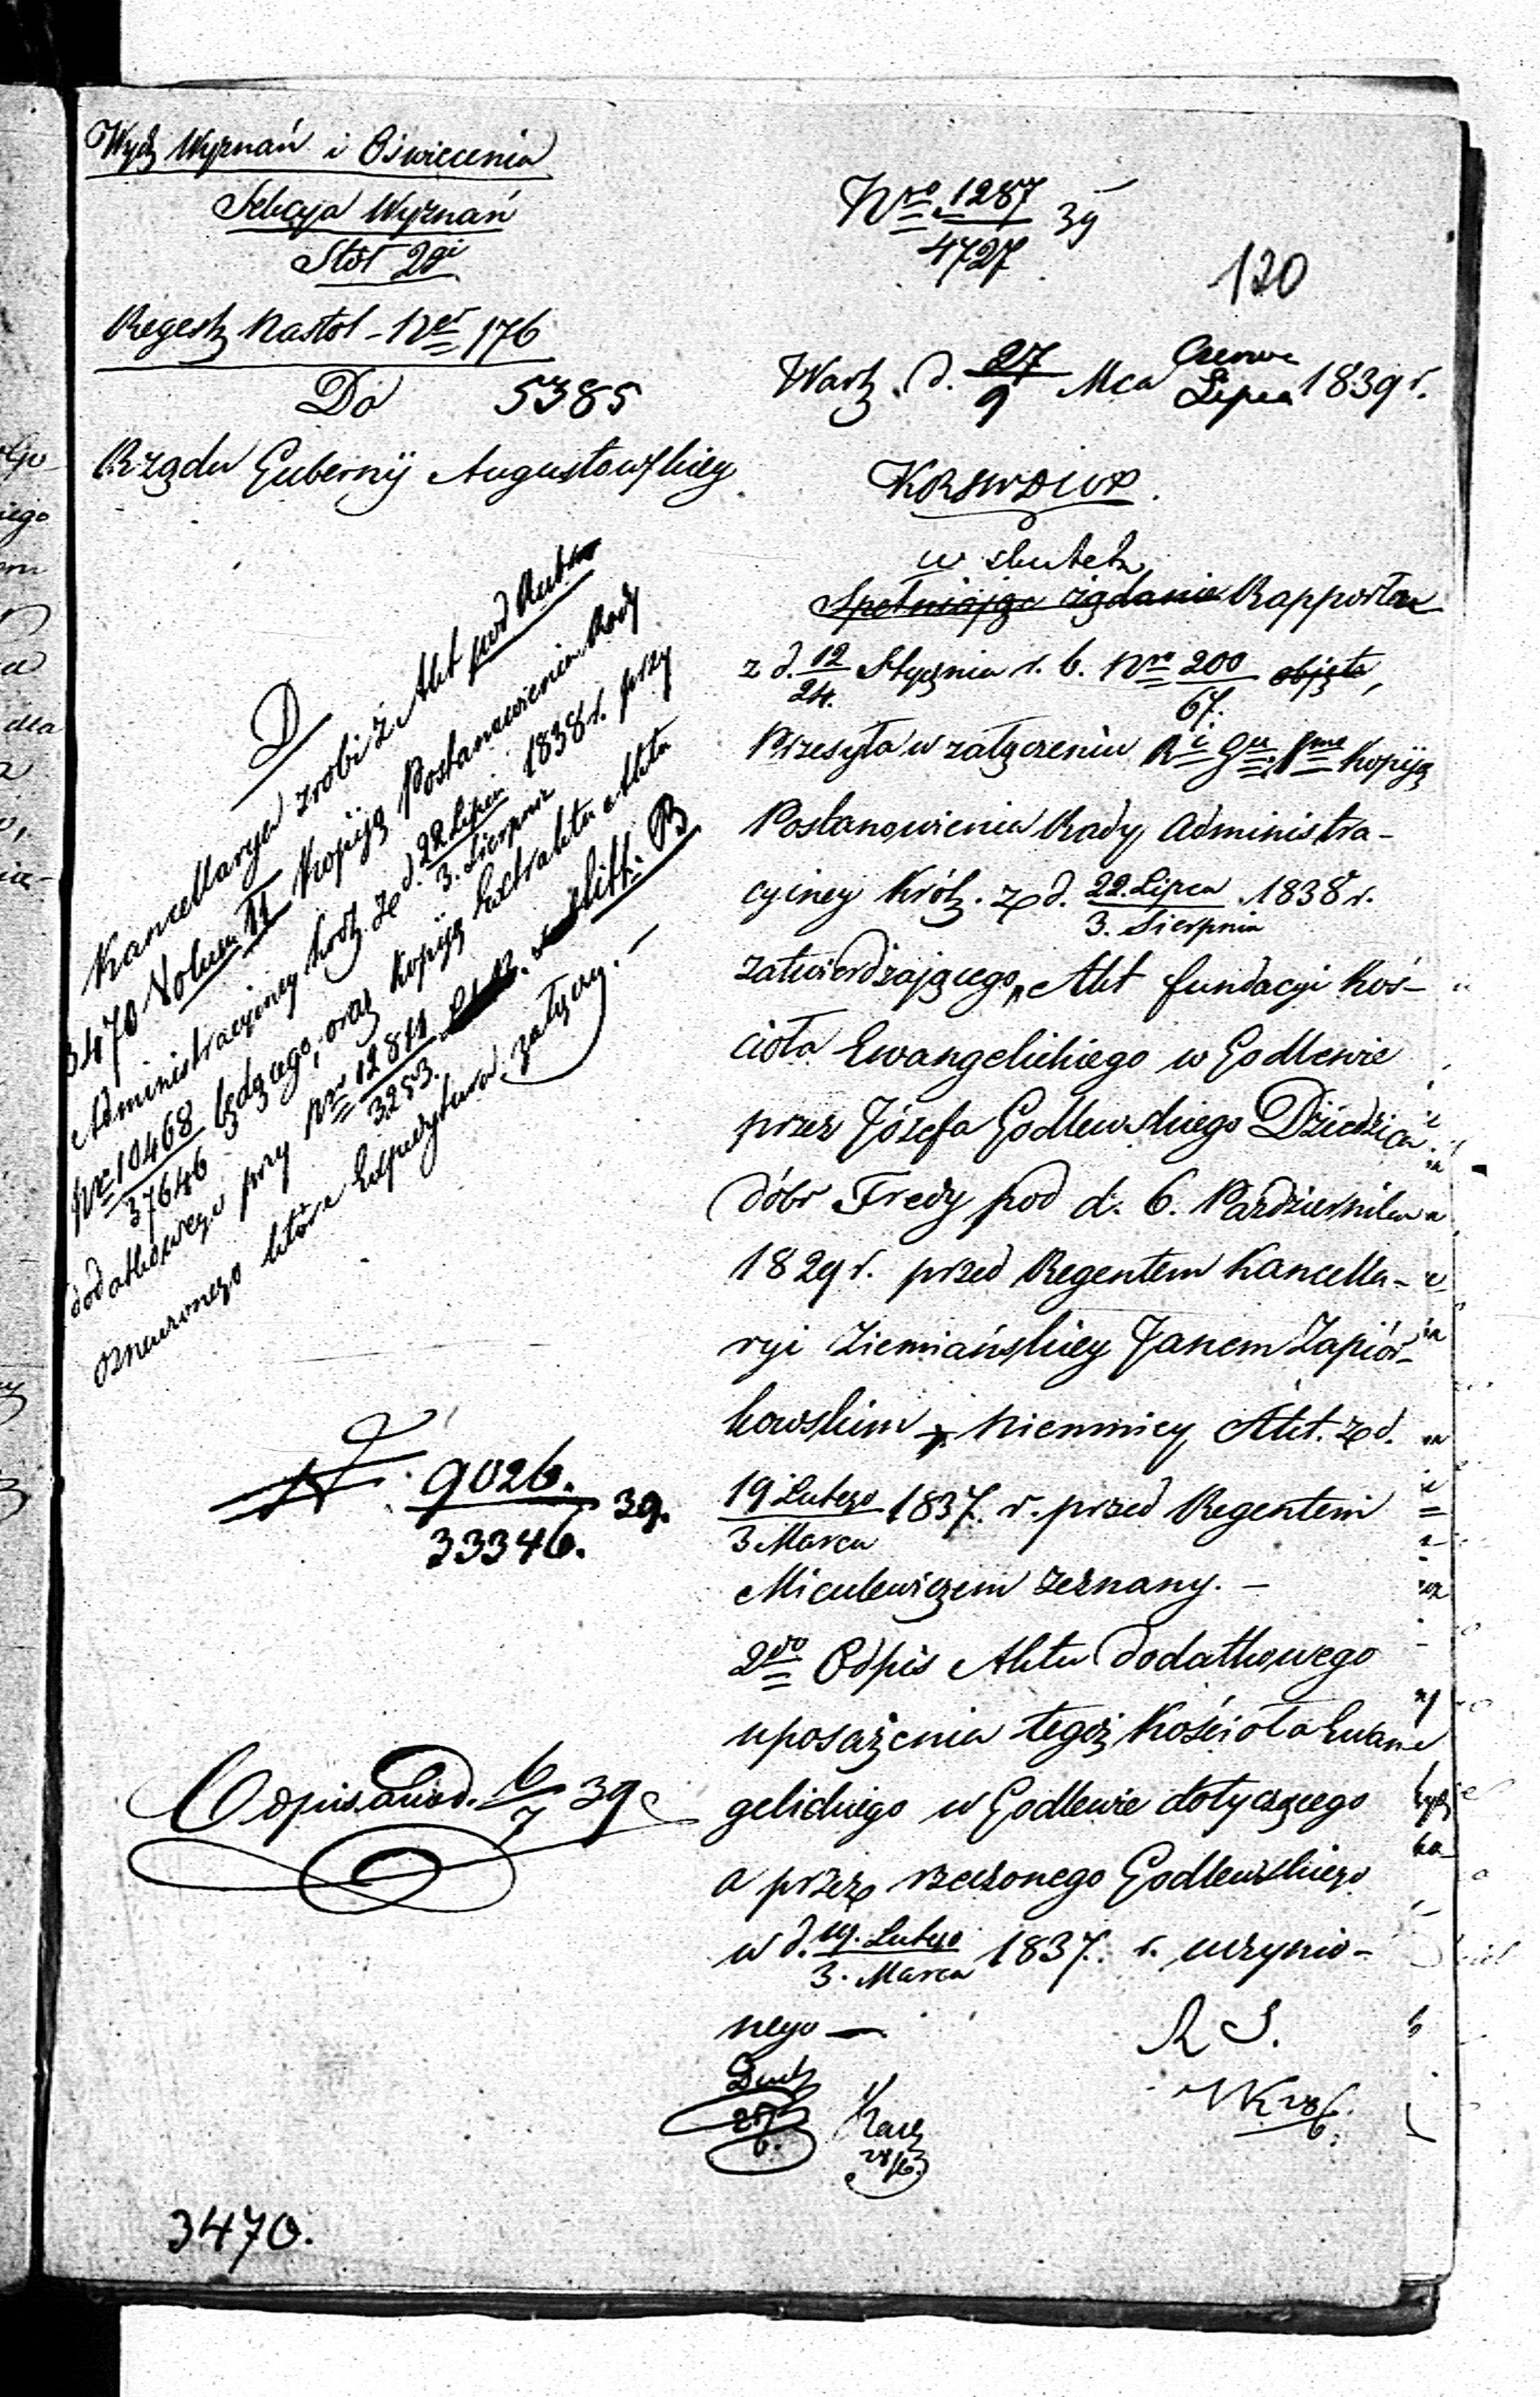 Wydz Wyznań i Oświecenia
Sekcyja Wyznań
Stół 2gi
Regestr Nastol - Ner 176
Do 5385
Rządu Gubernij Augustowskiey
Nro 1287 39
4727
120
Warsz. d. 27/9 Mca Czerwc/Lipca 1839 r.
K R S W D i O P.
w skutek
Spełniając rządanie Rapportu
z d. 12/24. Stycznia r. b. Nro 200/67. objęte,
Przesyła w załączeniu Kopiją
Postanowienia Rady Administra-
cyiney Król. z d. 22. Lipca/3. Sierpnia 1838 r.
zatwierdzającego Akt fundacyi Koś-
cioła Ewangelickiego w Godlewie
przez Józefa Godlewskiego Dziedzica
dóbr Fredy pod d. 6. Pazdziernika
1829 r. przed Regentem Kancella-
ryi Ziemiańskiey Janem Zapiór-
kowskim, Niemniey Akt. z d.
19 Lutego/3 Marca 1837. r. przed Regentem
Miculewiczem zeznany. -
2do Odpis Aktu dodatkowego
uposażenia tegoż Kościoła Ewan-
gelickiego w Godlewie dotyczącego
a przez rzeczonego Godlewskiego
w d. 19. Lutego/3. Marca 1837. r. uczynio-
nego —
R S.
D
Kancellarya zrobi z Akt pod Numr
3470 Volum II Kopiją Postanowienia Rady
Administracyjney Król. ze d. 22 Lipca/3. Sierpnia 1838 r. przy
Nro 10468/37646 będącego, oraz Kopiją Extraktu Aktu
dodatkowego przy Nro 12811/3253. Litt: B
oznaczonego które Expedytura załączy. -
N 9026./33346. 39.
Odpisano d. 6/7 39
3470.